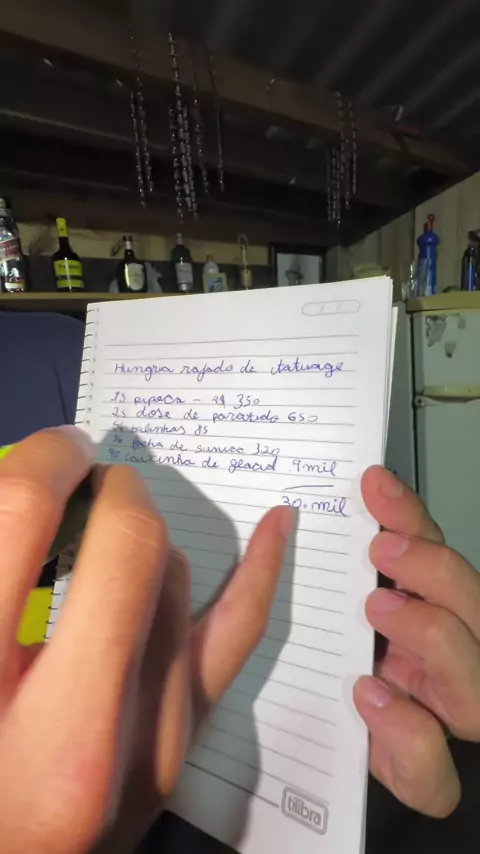 Hungria rajado de tatuage
15 pipoca - R$ 350
25 dose de paratudo 650
50 balinhas 85
30 ficha de sinuca 320
90 caixinha de glacial 9 mil
30. mil
tilibra